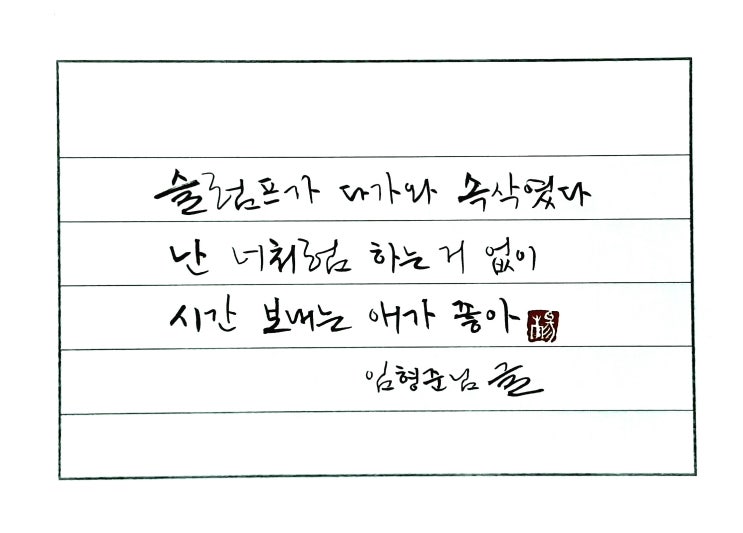 슬럼프가 다가와 속삭였다
난 너처럼 하는 거 없이
시간 보내는 애가 좋아
임형준님 글